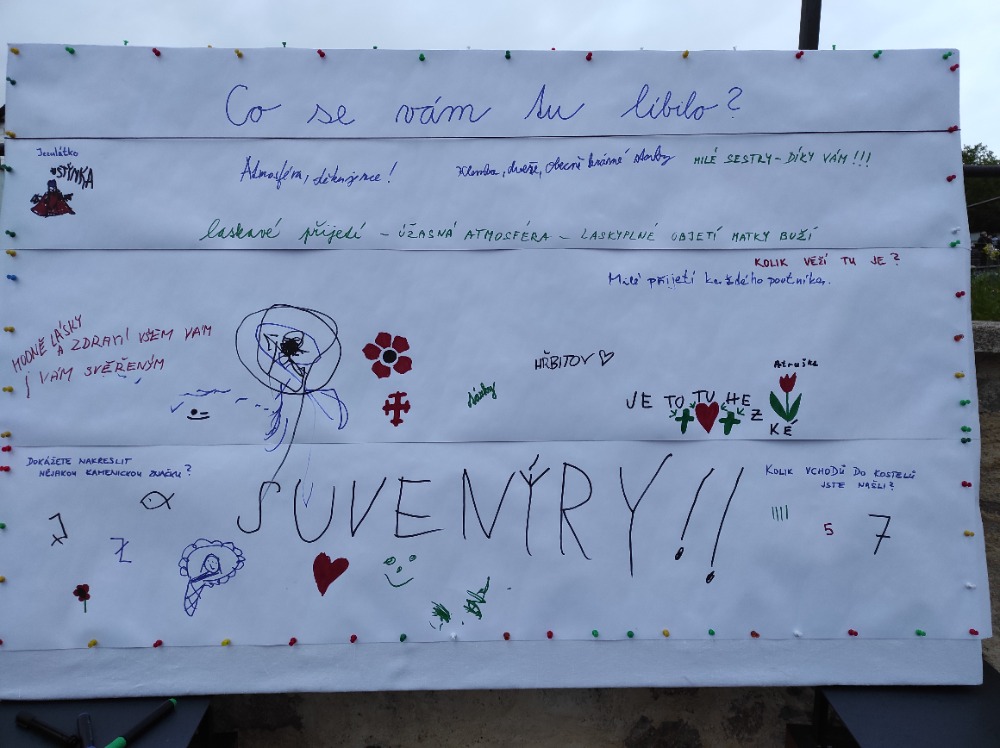 Co se vám tu líbilo?
Jezulátko
STÝNKA
Atmosféra, děkujeme!
Klenba, dveře, obecně krásné stavby
MILÉ SESTRY - DÍKY VÁM!!!
laskavé přijetí - ÚŽASNÁ ATMOSFÉRA - LASKYPLNÉ OBJETÍ MATKY BUŽÍ
KOLIK VĚŽÍ TU JE?
Milé přijetí každého poutníka.
HODNĚ LÁSKY
A ZDRAVÍ VŠEM VÁM
I VÁM SVĚŘENÝM
HŘBITOV
JE TO TU HE
Z
KÉ
DOKÁŽETE NAKRESLIT
NĚJAKOU KAMENICKOU ZNAČKU?
SUVENÝRY!!
KOLIK VCHODŮ DO KOSTELŮ
JSTE NAŠLI?
5
7